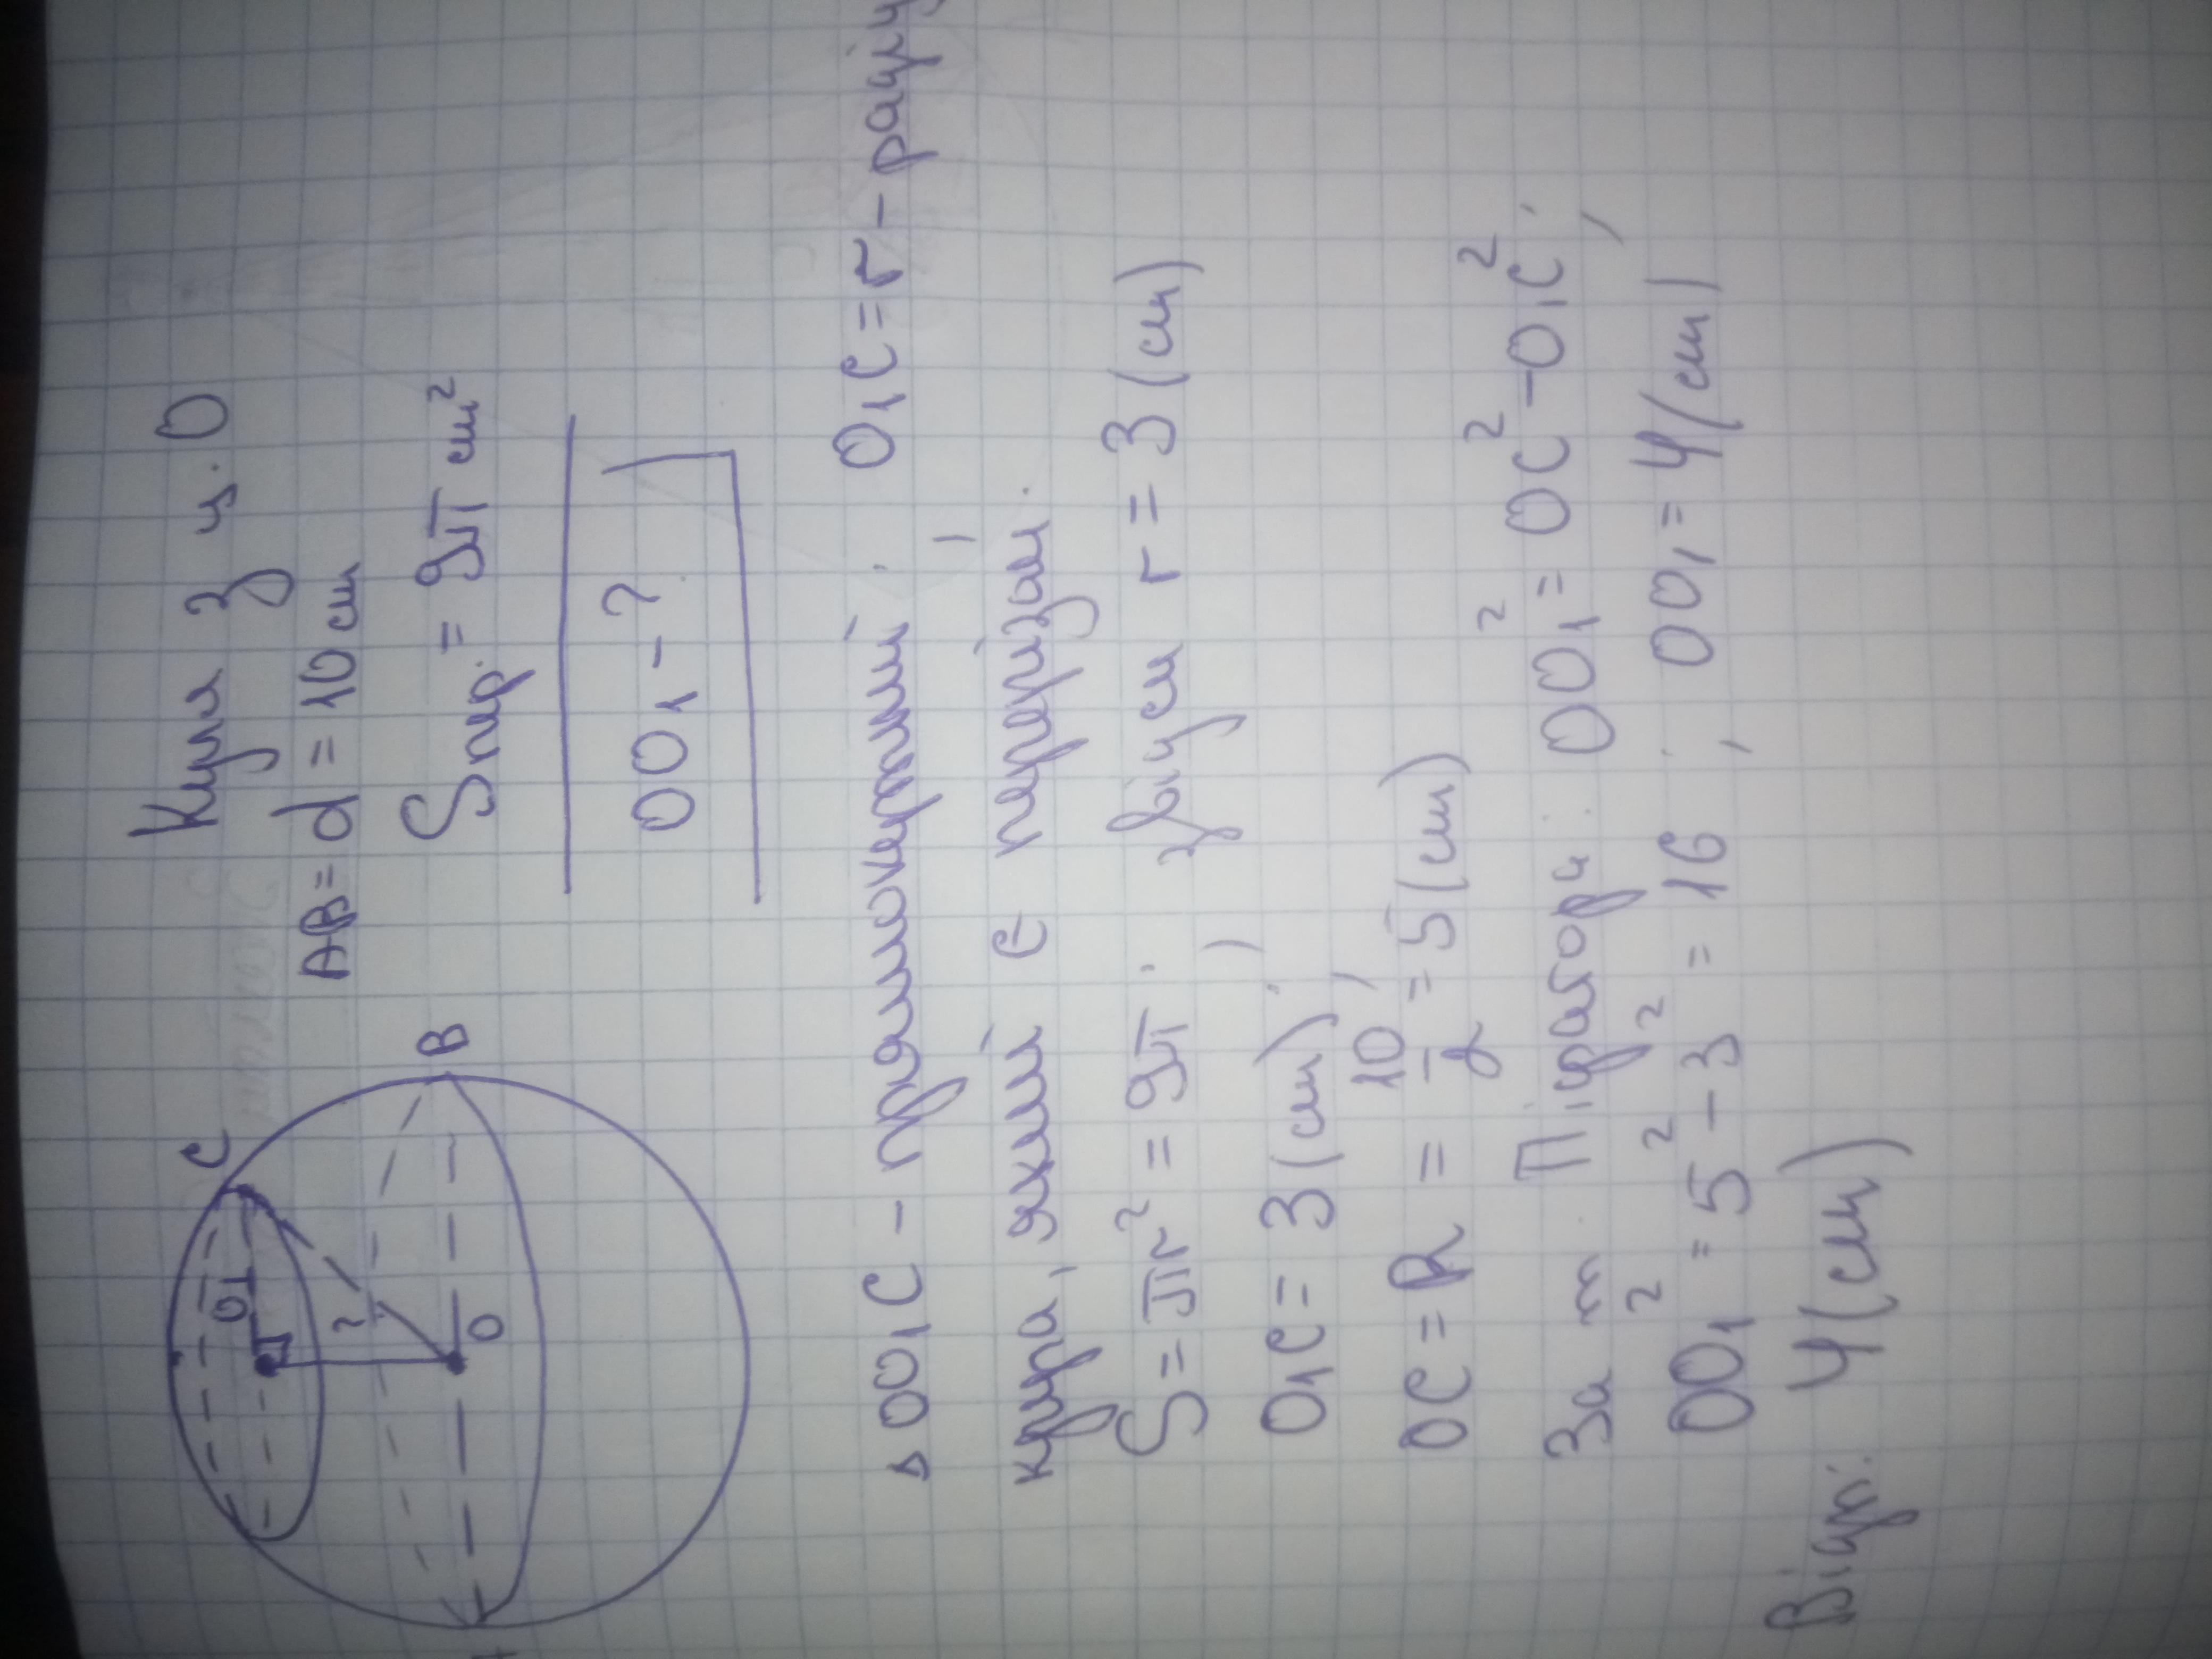 Куля з ц. О
AB = d = 10 см
Sпер. = 9π см²
OO₁ - ?
C
O₁
B
?
O
△ OO₁C - прямокутний; O₁C = r - радіу
круга, яким є переріз.
S = πr² = 9π; звідси r = 3 (см)
O₁C = 3 (см);
OC = R = 10/2 = 5 (см)
За т. Піфагора: OO₁² = OC² - O₁C²;
OO₁² = 5² - 3² = 16; OO₁ = 4 (см)
Відп.: 4 (см)